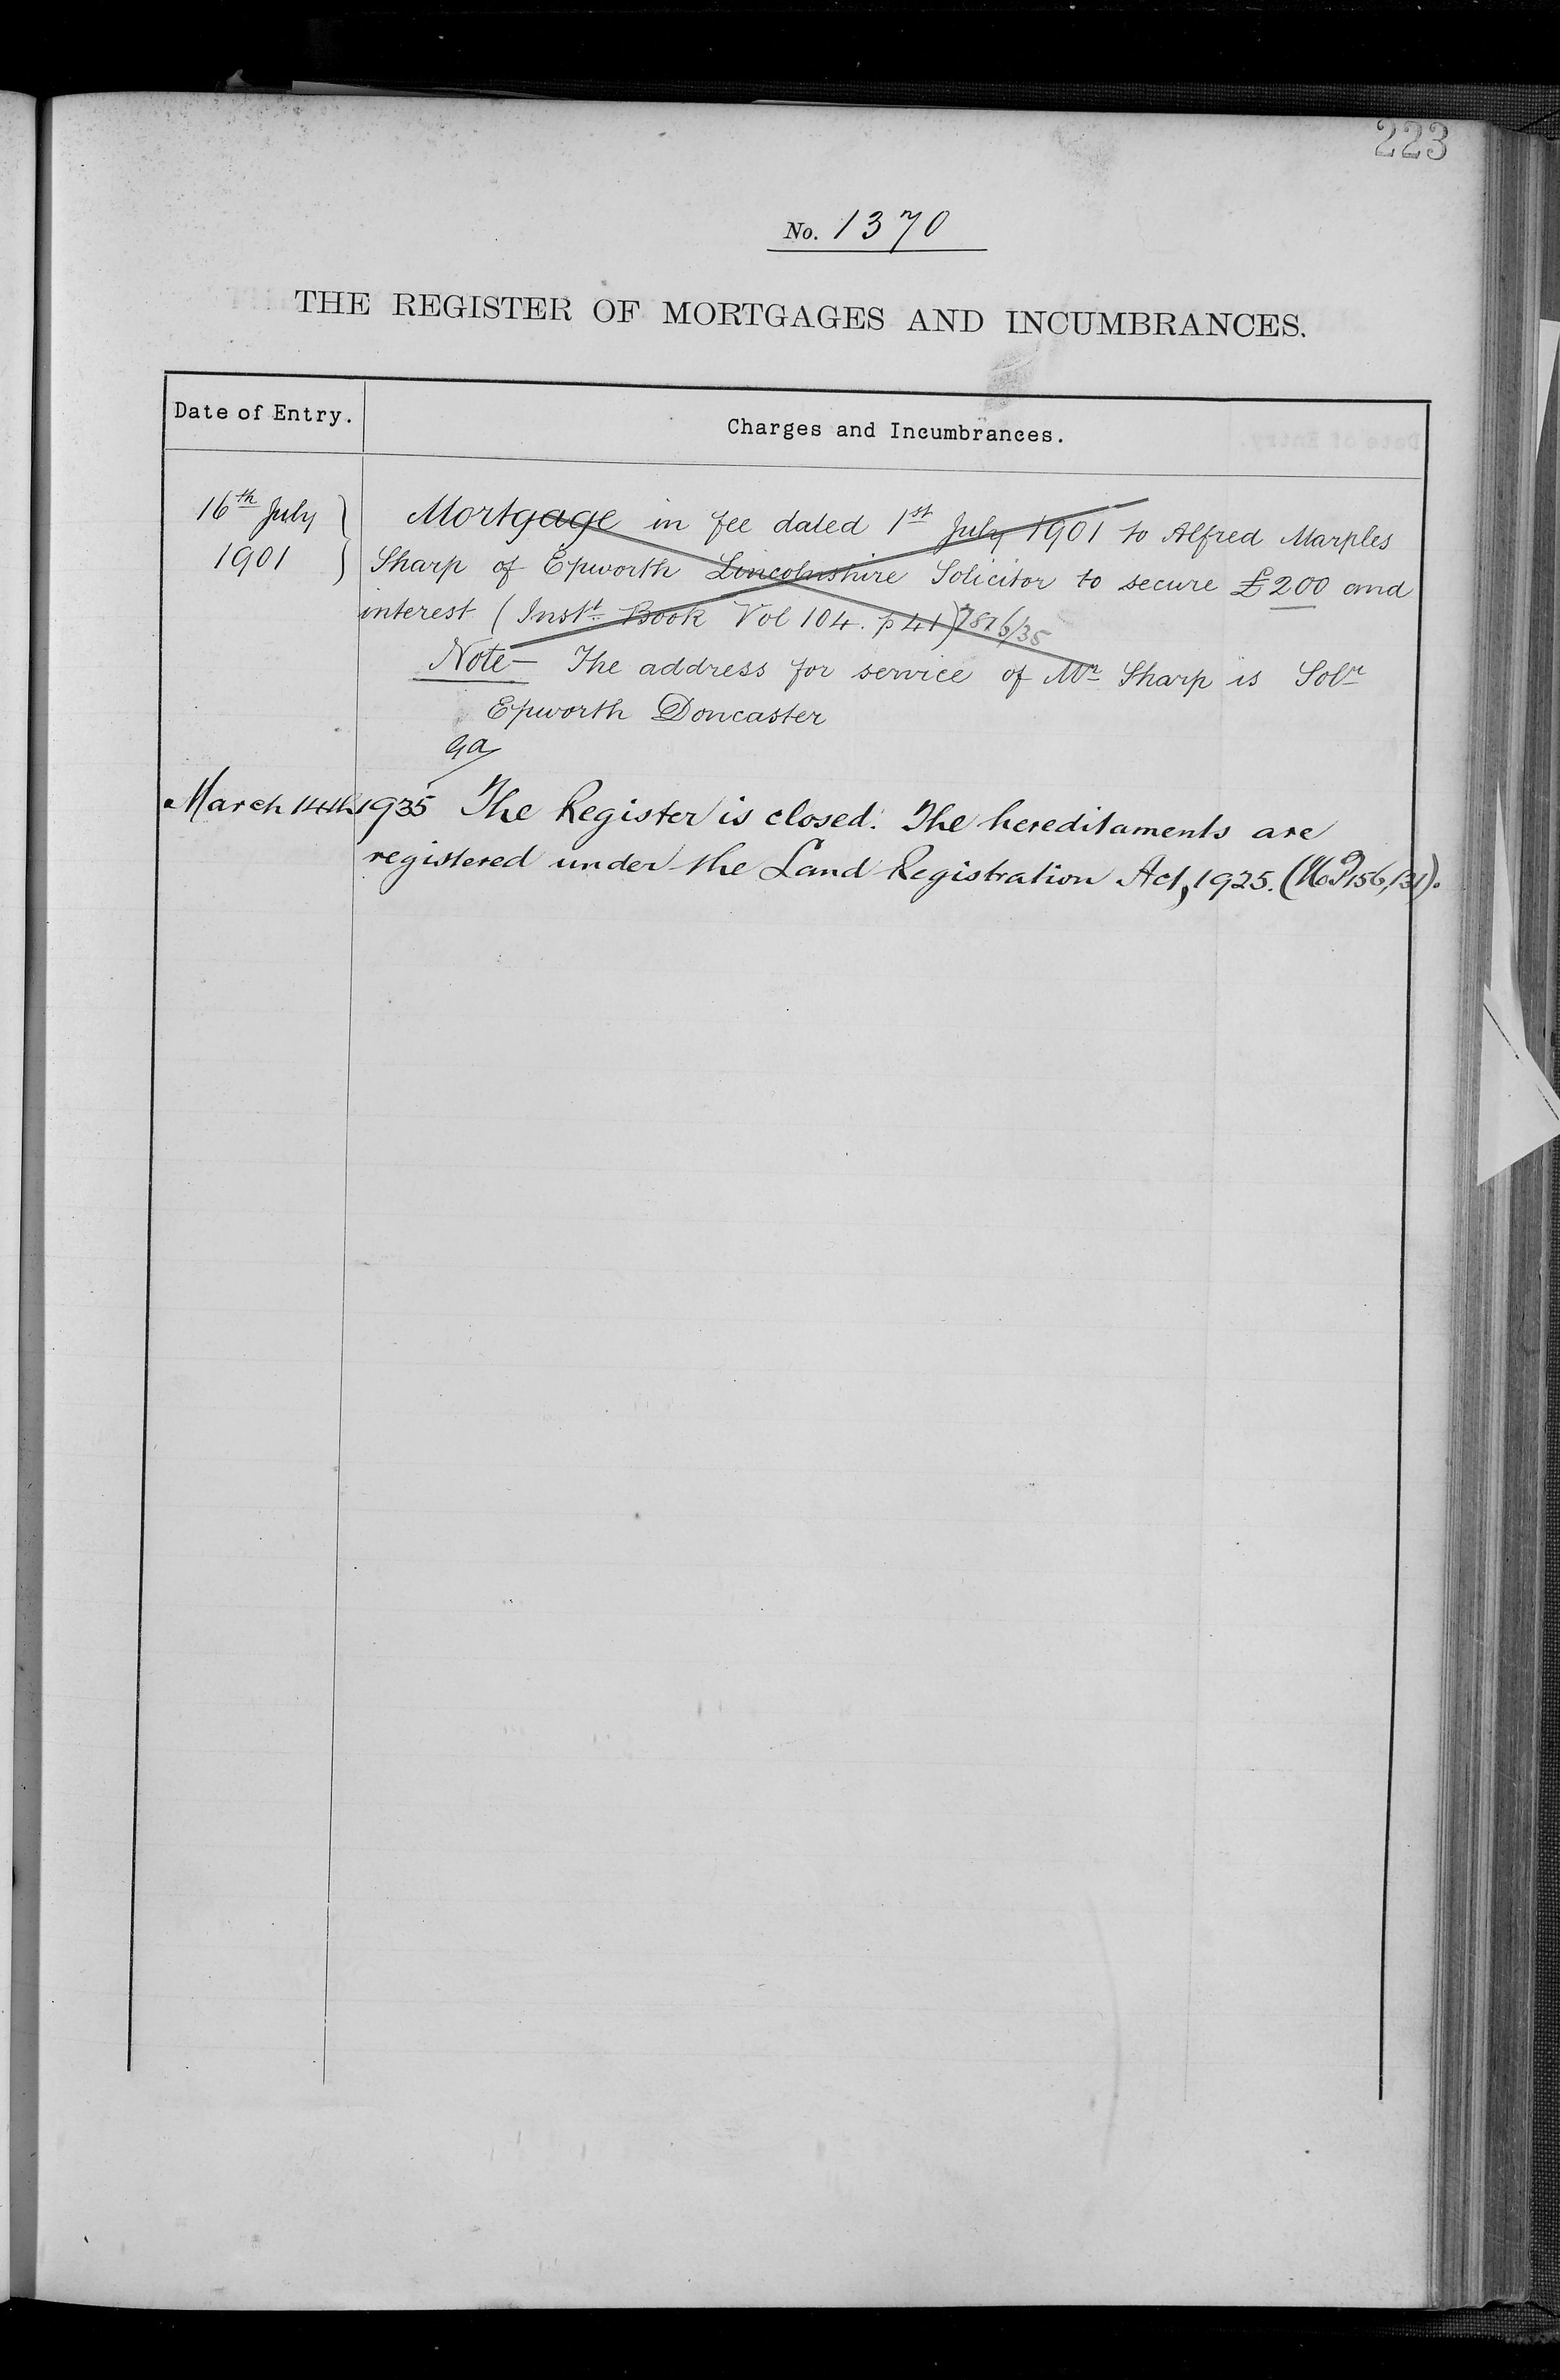 223
No. 1370
THE REGISTER OF MORTGAGES AND INCUMBRANCES.
Date of Entry.
Charges and Incumbrances.
16th July
1901
Mortgage in fee dated 1st July 1901 to Alfred Marples
Sharp of Epworth Lincolnshire Solicitor to secure £200 and
interest (Instt Book Vol 104. p 41) 7816/35
Note — The address for service of Mr Sharp is Solr
Epworth Doncaster
March 14th 1935 The Register is closed. The hereditaments are
registered under the Land Registration Act, 1925. (156,131).